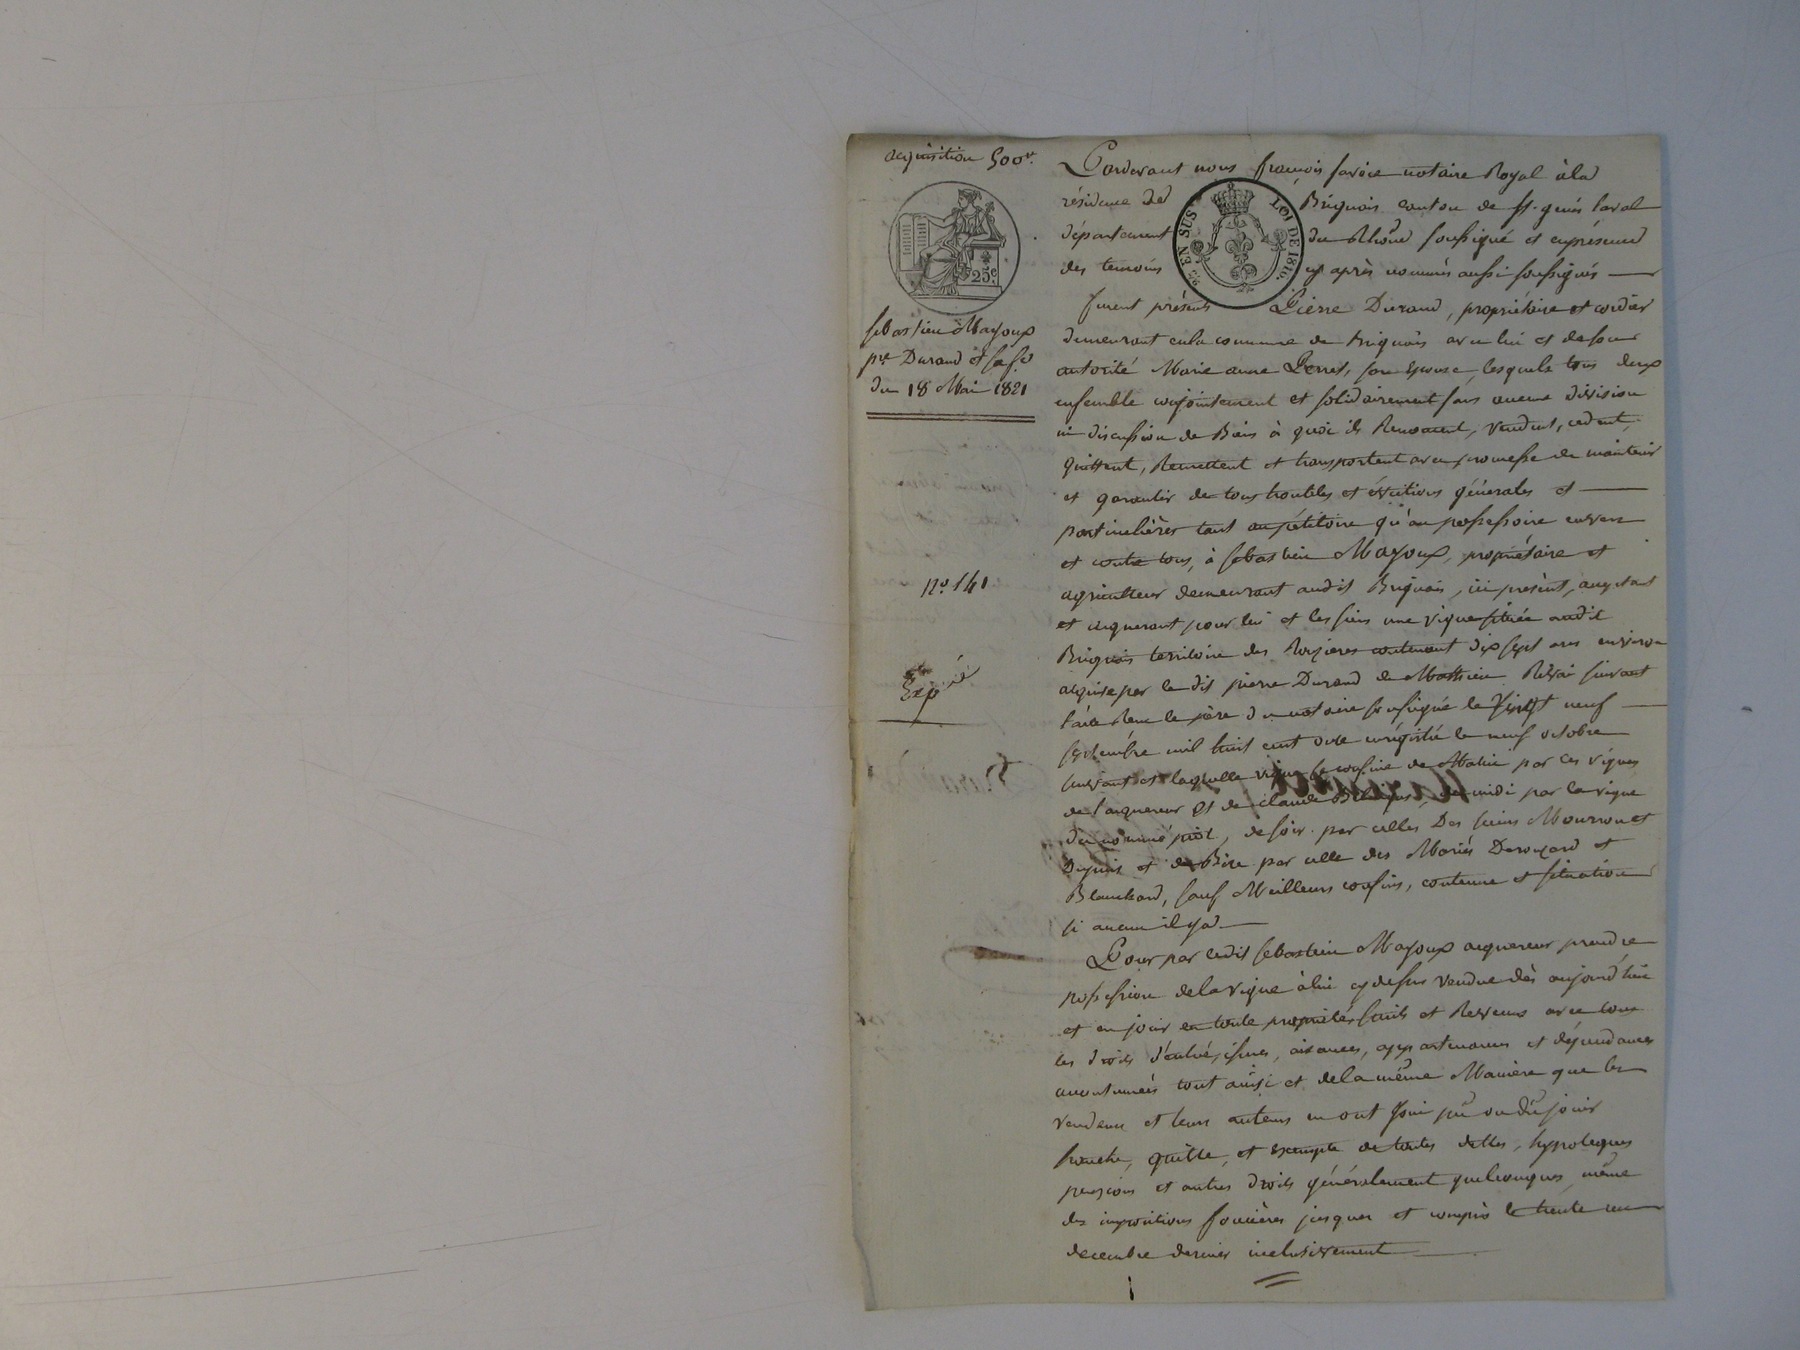 acquisition 500 fr.
25 c.
sebastien Mayoux
pre. Durand et sa fe.
du 18 Mai 1821
no. 141
Exp.ié
Pardevant nous françois favre notaire Royal à la
résidence de Brignais canton de St. genis laval
département du Rhône soussigné et en présence
des temoins cy après nommés aussi soussignés
25 EN SUS LOI DE 1816.
furent présents Pierre Durand, propriétaire et cordier
demeurant en la commune de Brignais avec lui et de son
autorité Marie anne Perret, son épouse, lesquels tous deux
ensemble conjointement et solidairement sans aucune division
ni discussion de Biens à quoi ils Renoncent, vendent, cedent,
quittent, Remettent et transportent avec promesse de maintenir
et garantir de tous troubles et évictions générales et
particulières tant au pétitoire qu'au possessoire envers
et contre tous, à sebastien Mayoux, propriétaire et
agriculteur demeurant audit Brignais, ici présent, acceptant
et acquerant pour lui et les siens une vigne située audit
Brignais territoire des Rozieres contenant dix sept ares environ
acquise par le dit pierre Durand de Mathieu suivant
l'acte Reçu le père du notaire soussigné le vingt neuf
septembre mil huit cent onze enrégistré le neuf octobre
suivant et laquelle vigne se confine de Matin par les vignes
de l'acquereur et de claude de midi par la vigne
du nommé piot, de soir par celles Des sieurs Mourron et
Dupuis et de Bize par celle des Mariés Derozard et
Blanchard, sauf Meilleurs confins, contenue et situation
si aucun il y a
Pour par ledit sebastien Mayoux acquereur prendre
possession de la vigne à lui cy dessus vendue dès aujourd'hui
et en jouir en toute propriétés fruits et Revenus avec tous
les droits d'entrée, issues, aisances, appartenances et dépendances
accoutumées tout ainsi et de la même Manière que les
vendeurs et leurs auteurs en ont joui pû ou dû jouir
franche, quitte, et exempte de toutes dettes, hypoteques
pensions et autres droits généralement quelconques, même
des impositions foncières jusques et compris le trente un
decembre dernier inclusivement